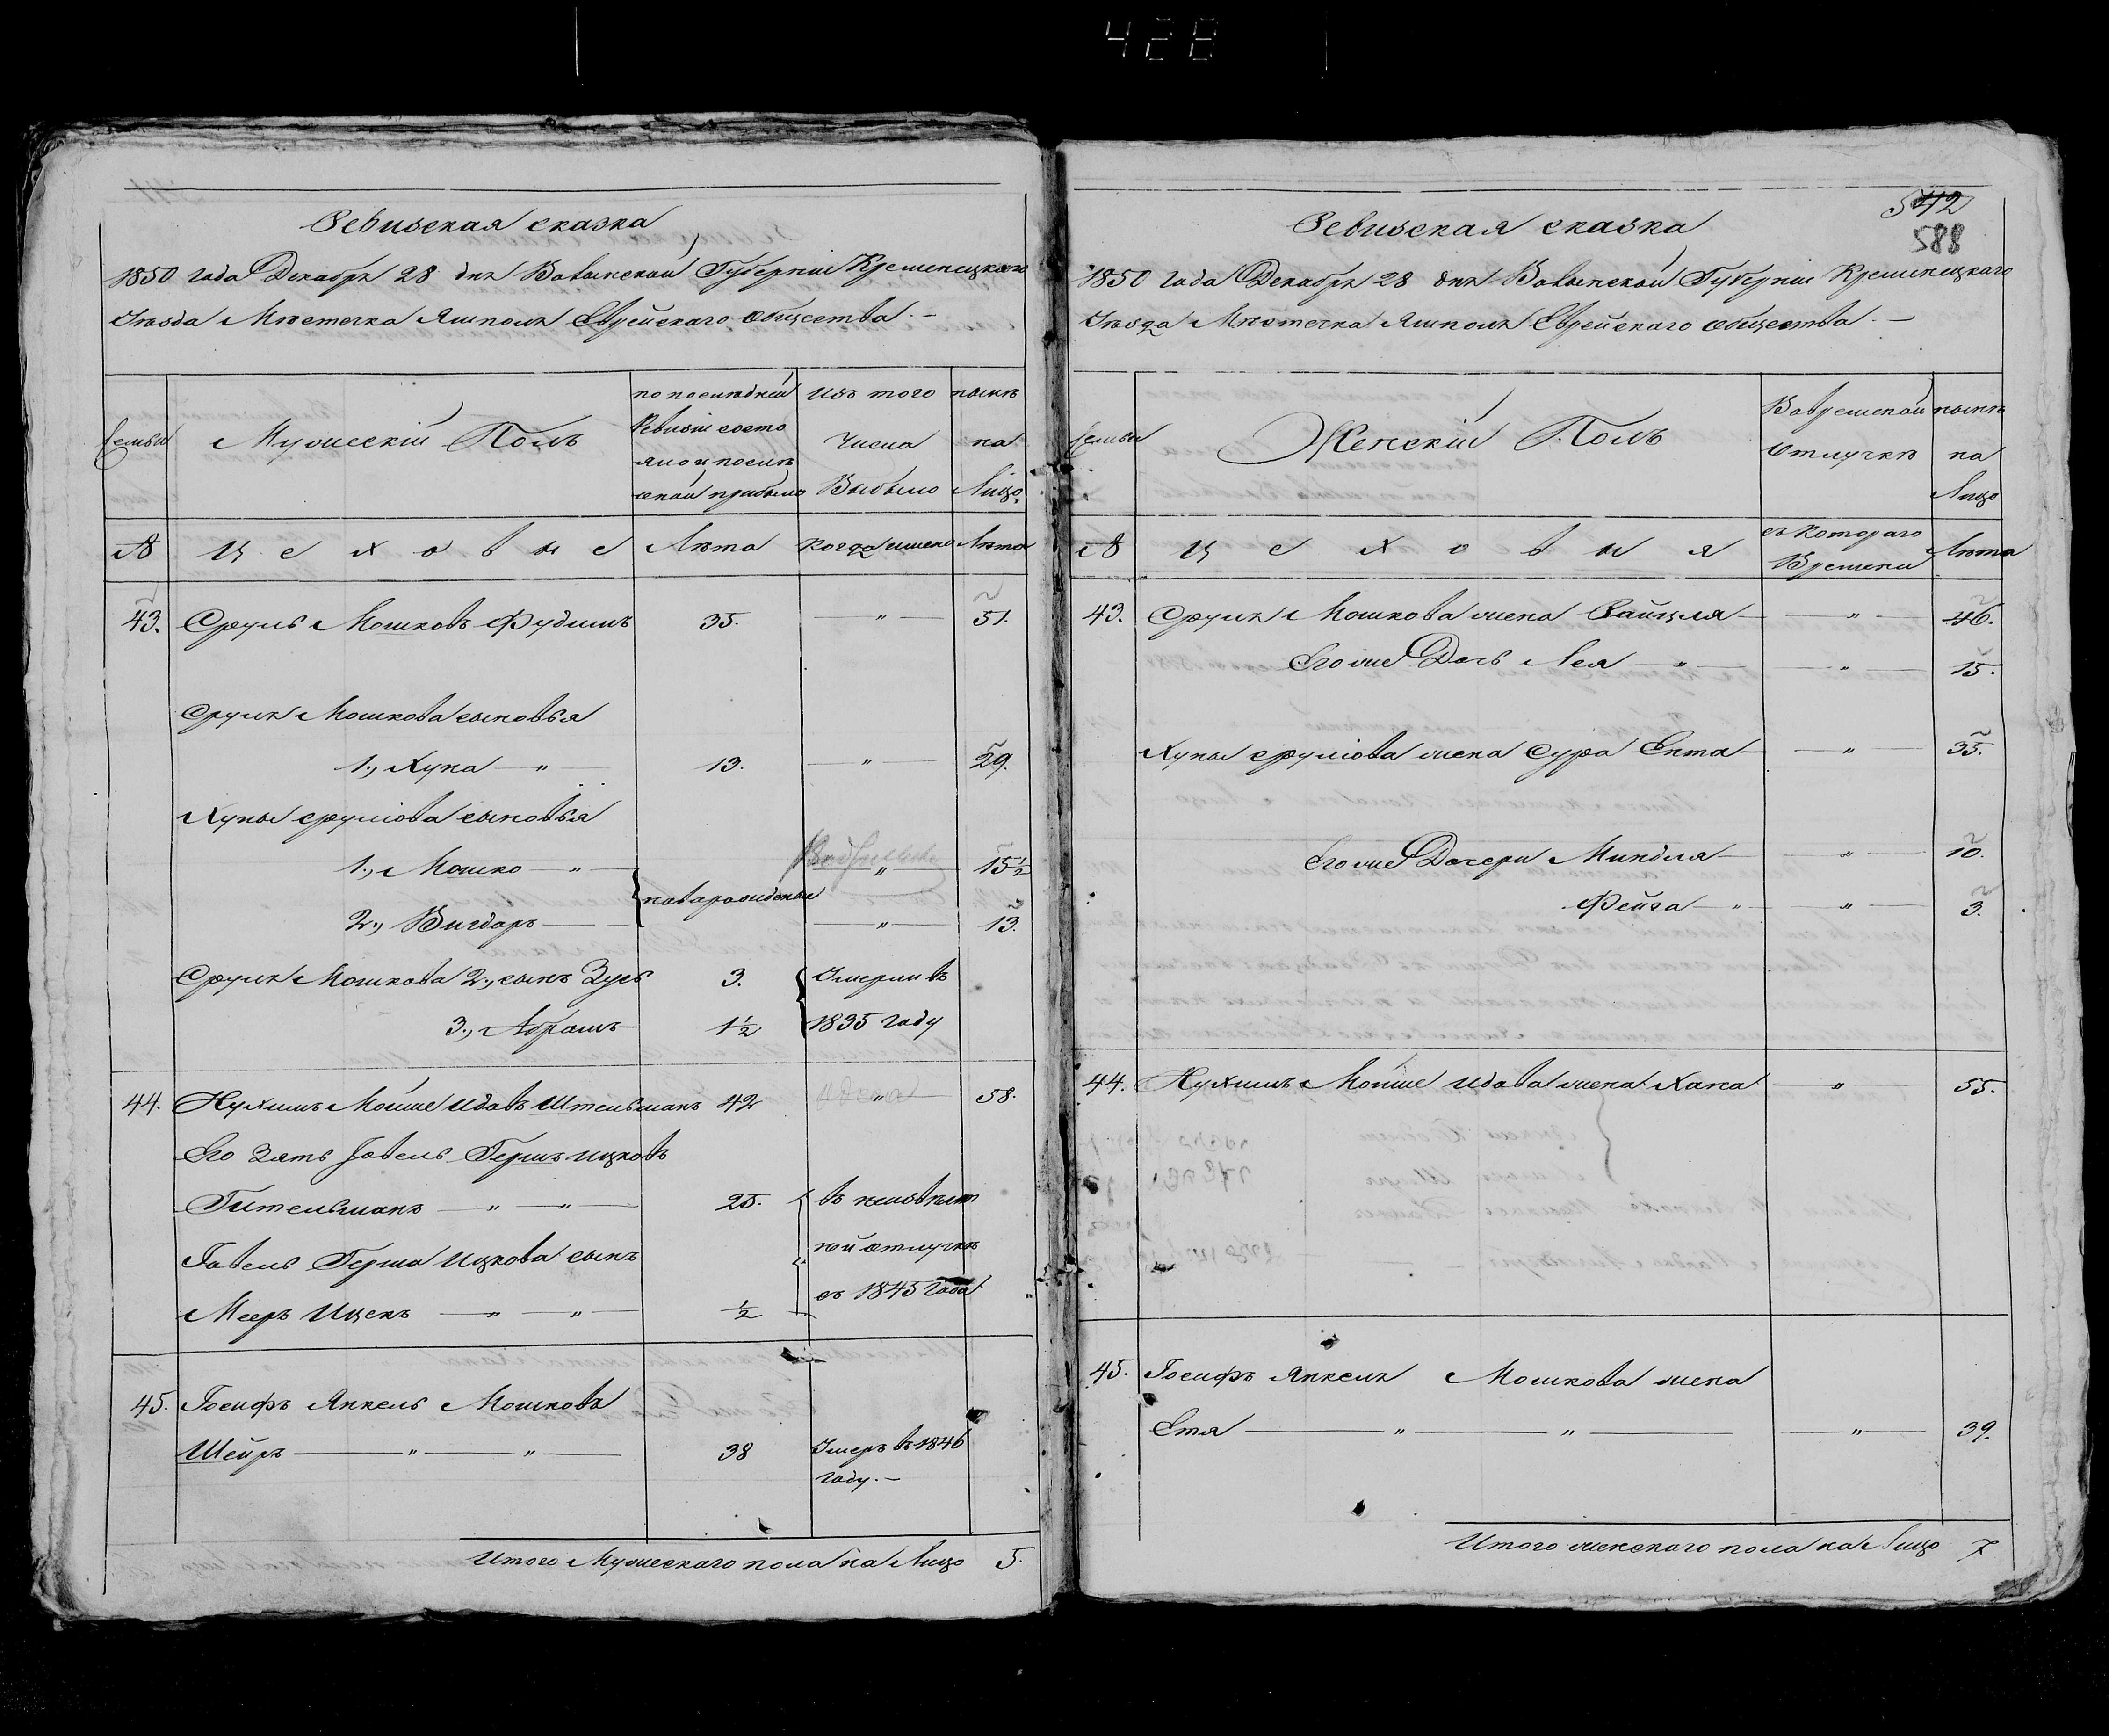 428
Ревизская сказка
1850 года Декабря 28 дня Волынской Губернии Кременецкаго
Уѣзда Мѣстечка Ямполя Еврейскаго общества. —
Семьи
Мужескій Полъ
по послѣдней
Ревизіи состо
яло и послѣ
оной прибыло
изъ того
числа
Выбыло
нынѣ
на
Лицо.
№
Ц е х о в ы е
Лѣта
Когда именно
Лѣта
43. Сруль Мошковъ Фудимъ 35. — " — 51.
Сруля Мошкова сыновья
1., Хуна — " — 13. — " — 29.
Хуны Срулiова сыновья
1., Мошко — " — новорожденные " 15½
2., Вигдоръ — — " — 13.
Сруля Мошкова 2., сынъ Зусь 3. Умерли въ
3., Абрамъ — 1½ 1835 году
44. Нухимъ Мойше Идовъ Штельманъ 42 — " — 58.
Его Зять Іовель Гершъ Ицковъ
Гительманъ — " — " — 25. въ неизвѣст
Іовель Герша Ицкова сынъ ной отлучкѣ
Мееръ Ицекъ — " — " — ½ съ 1845 года
45. Іосифъ Янкель Мошковъ
Шейръ — " — " — 38 Умеръ въ 1846
году. —
Итого Мужескаго пола на Лицо 5.
542
588
Ревизская сказка
1850 года Декабря 28 дня Волынской Губернии Кременецкаго
Уѣзда Мѣстечка Ямполя Еврейскаго общества. —
Семьи
Женскій Полъ
Вовременной
отлучкѣ
нынѣ
на
Лицо
№
Ц е х о в ы я
съ котораго
Времени
Лѣта
43. Сруля Мошкова жена Райцля — " — 46.
Его же Дочь Лея — " — " — 15.
Хуны Срулiова жена Сура Ента — " — 35.
Его же Дочери Миндля — " — 10.
Фейга — " — " — 3.
44. Нухимъ Мойше Идова жена Хана " 55.
45. Іосифъ Янкеля Мошкова жена
Етя — " — " — " — 39.
Итого женскаго пола на Лицо 7